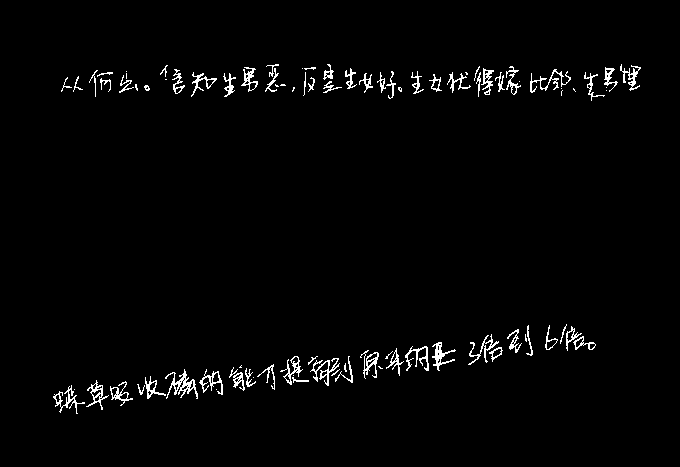 从何出。信知生男恶,反是生女好。生女犹得嫁比邻、生男埋
蜈草吸收磷的能力提高到原来的 3倍到6倍。